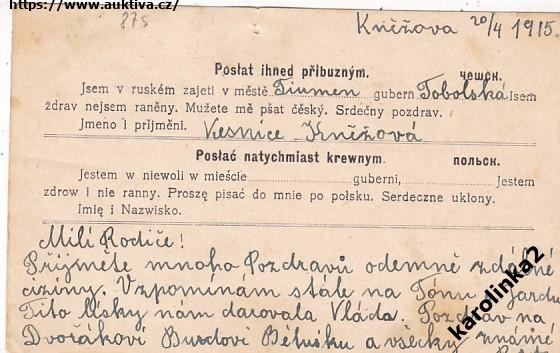 https://www.auktiva.cz/
275
Kněžova 20/4 1915.
Poslat ihned přibuznym. чешск.
Jsem v ruském zajeti v městě Tiumen gubern. Tobolská Jsem
zdrav nejsem raněny. Mužete mě pšat čěský. Srdečny pozdrav.
Jmeno i prijměni. Vesnice Kněžová
Posłać natychmiast krewnym. польск.
Jestem w niewoli w mieście guberni, Jestem
zdrow i nie ranny. Proszę pisać do mnie po połsku. Serdeczne ukłony.
Imię i Nazwisko.
Milí Rodiče!
Přijměte mnoho Pozdravů odemně z dálné
ciziny. Vzpomínám stále na Tónu Jardu
Tito lísky nám darovala Vláda. Pozdrav na
Dvořákovi Bětušku a všecky známé
karolinka2